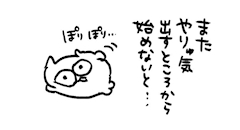 また
やりゅ気
出すところから
始めないと…
ぽりぽり…